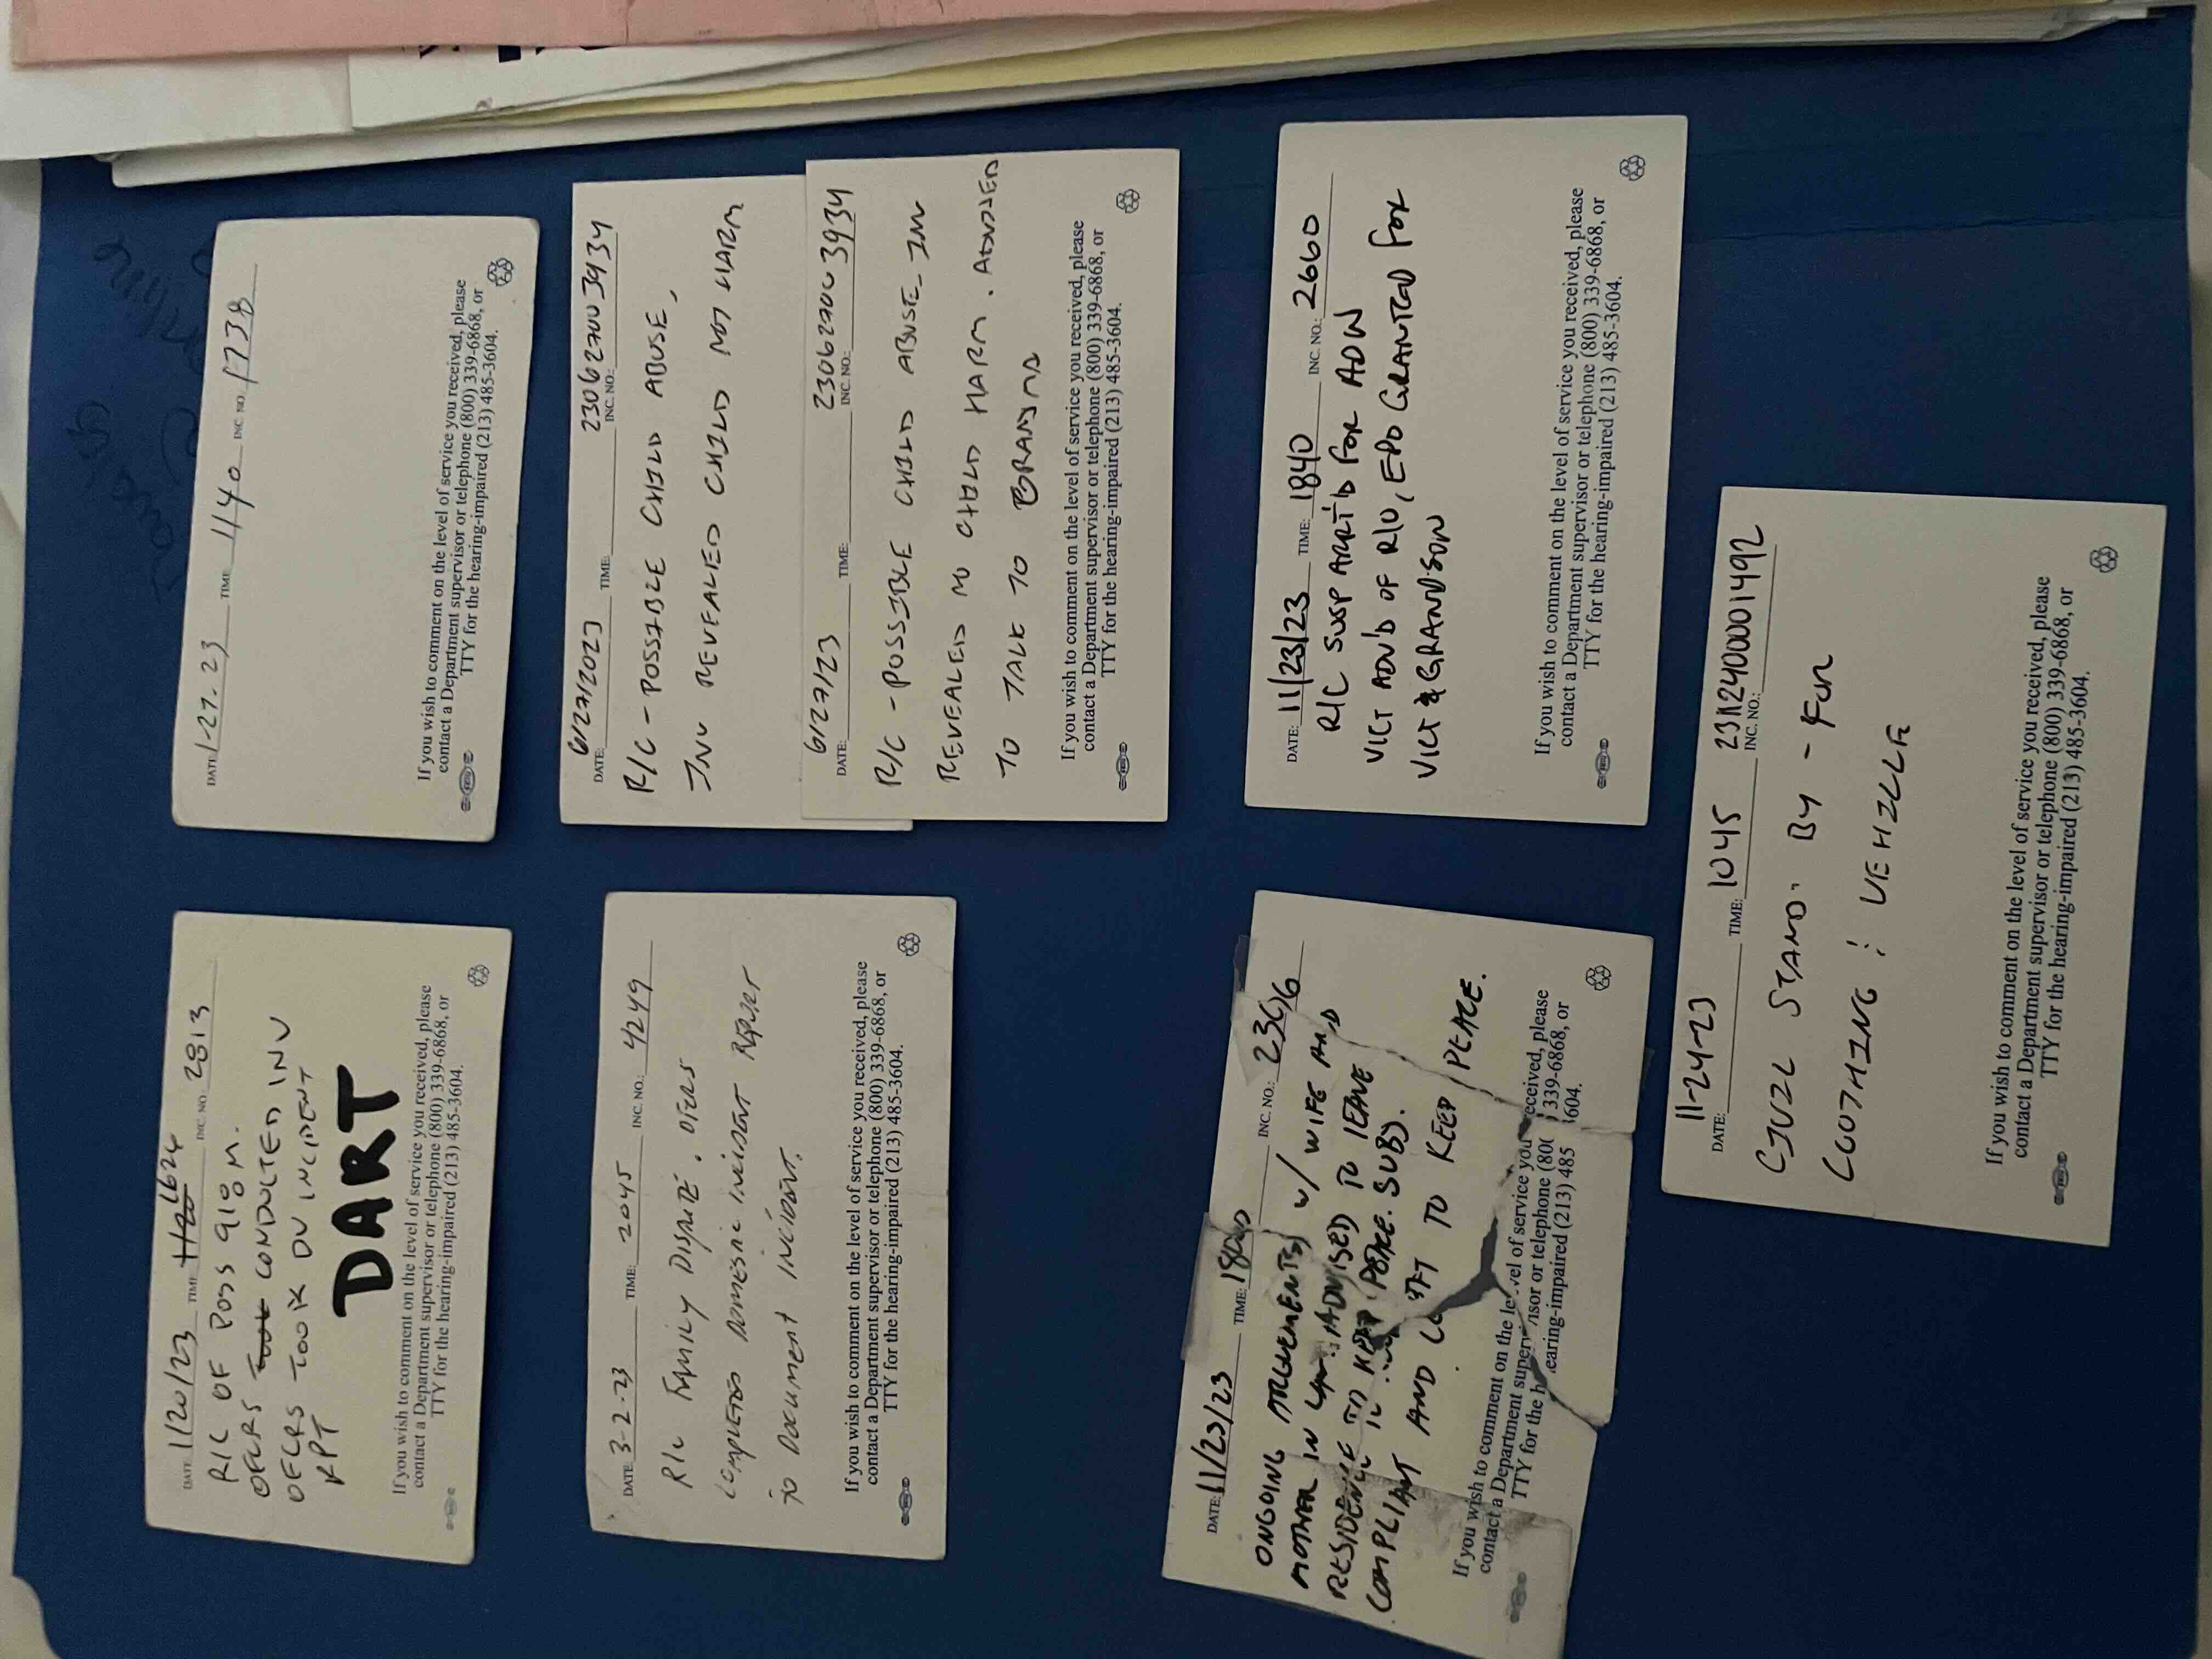 DATE 1/20/23 TIME 1120 1624 INC. NO. 2813
R/C OF POSS 918 M.
OFCRS TOOK CONDUCTED INV
OFCRS TOOK DV INCIDENT
RPT
DART
If you wish to comment on the level of service you received, please
contact a Department supervisor or telephone (800) 339-6868, or
TTY for the hearing-impaired (213) 485-3604.
DATE 1-27-23 TIME 1140 INC. NO. 1738
If you wish to comment on the level of service you received, please
contact a Department supervisor or telephone (800) 339-6868, or
TTY for the hearing-impaired (213) 485-3604.
DATE: 3-2-23 TIME: 2045 INC. NO.: 4249
R/C FAMILY DISPUTE. OFCRS
COMPLETED DOMESTIC INCIDENT REPORT
TO DOCUMENT INCIDENT.
If you wish to comment on the level of service you received, please
contact a Department supervisor or telephone (800) 339-6868, or
TTY for the hearing-impaired (213) 485-3604.
DATE: 6/27/2023 TIME: INC. NO.: 230627003934
R/C - POSSIBLE CHILD ABUSE,
INV REVEALED CHILD NOT HARM
DATE: 6/27/23 TIME: INC. NO.: 230627003934
R/C - POSSIBLE CHILD ABUSE INV
REVEALED NO CHILD HARM. ADVISED
TO TALK TO GRANDMA
If you wish to comment on the level of service you received, please
contact a Department supervisor or telephone (800) 339-6868, or
TTY for the hearing-impaired (213) 485-3604.
DATE: 11/23/23 TIME: INC. NO.:
ONGOING ARGUEMENT(S) W/ WIFE AND
MOTHER IN LAW. ADVISED TO LEAVE
RESIDENCE TO KEEP PEACE. SUBJ.
COMPLIANT AND LEFT TO KEEP PEACE.
If you wish to comment on the level of service you received, please
contact a Department supervisor or telephone (800) 339-6868, or
TTY for the hearing-impaired (213) 485 3604.
DATE: 11/23/23 TIME: 1840 INC. NO.: 2660
R/C SUSP ARRT'D FOR ADW
VICT ADV'D OF R/O, EPO GRANTED FOR
VICT & GRANDSON
If you wish to comment on the level of service you received, please
contact a Department supervisor or telephone (800) 339-6868, or
TTY for the hearing-impaired (213) 485-3604.
DATE: 11-24-23 TIME: 1045 INC. NO.: 23112400001492
CIVIL STAND. BY - FOR
CLOTHING & VEHICLE
If you wish to comment on the level of service you received, please
contact a Department supervisor or telephone (800) 339-6868, or
TTY for the hearing-impaired (213) 485-3604.